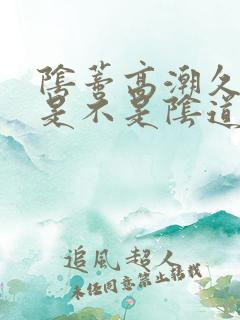 陰蒂高潮久
是不是陰道
追風超人
未任同意禁止轉載